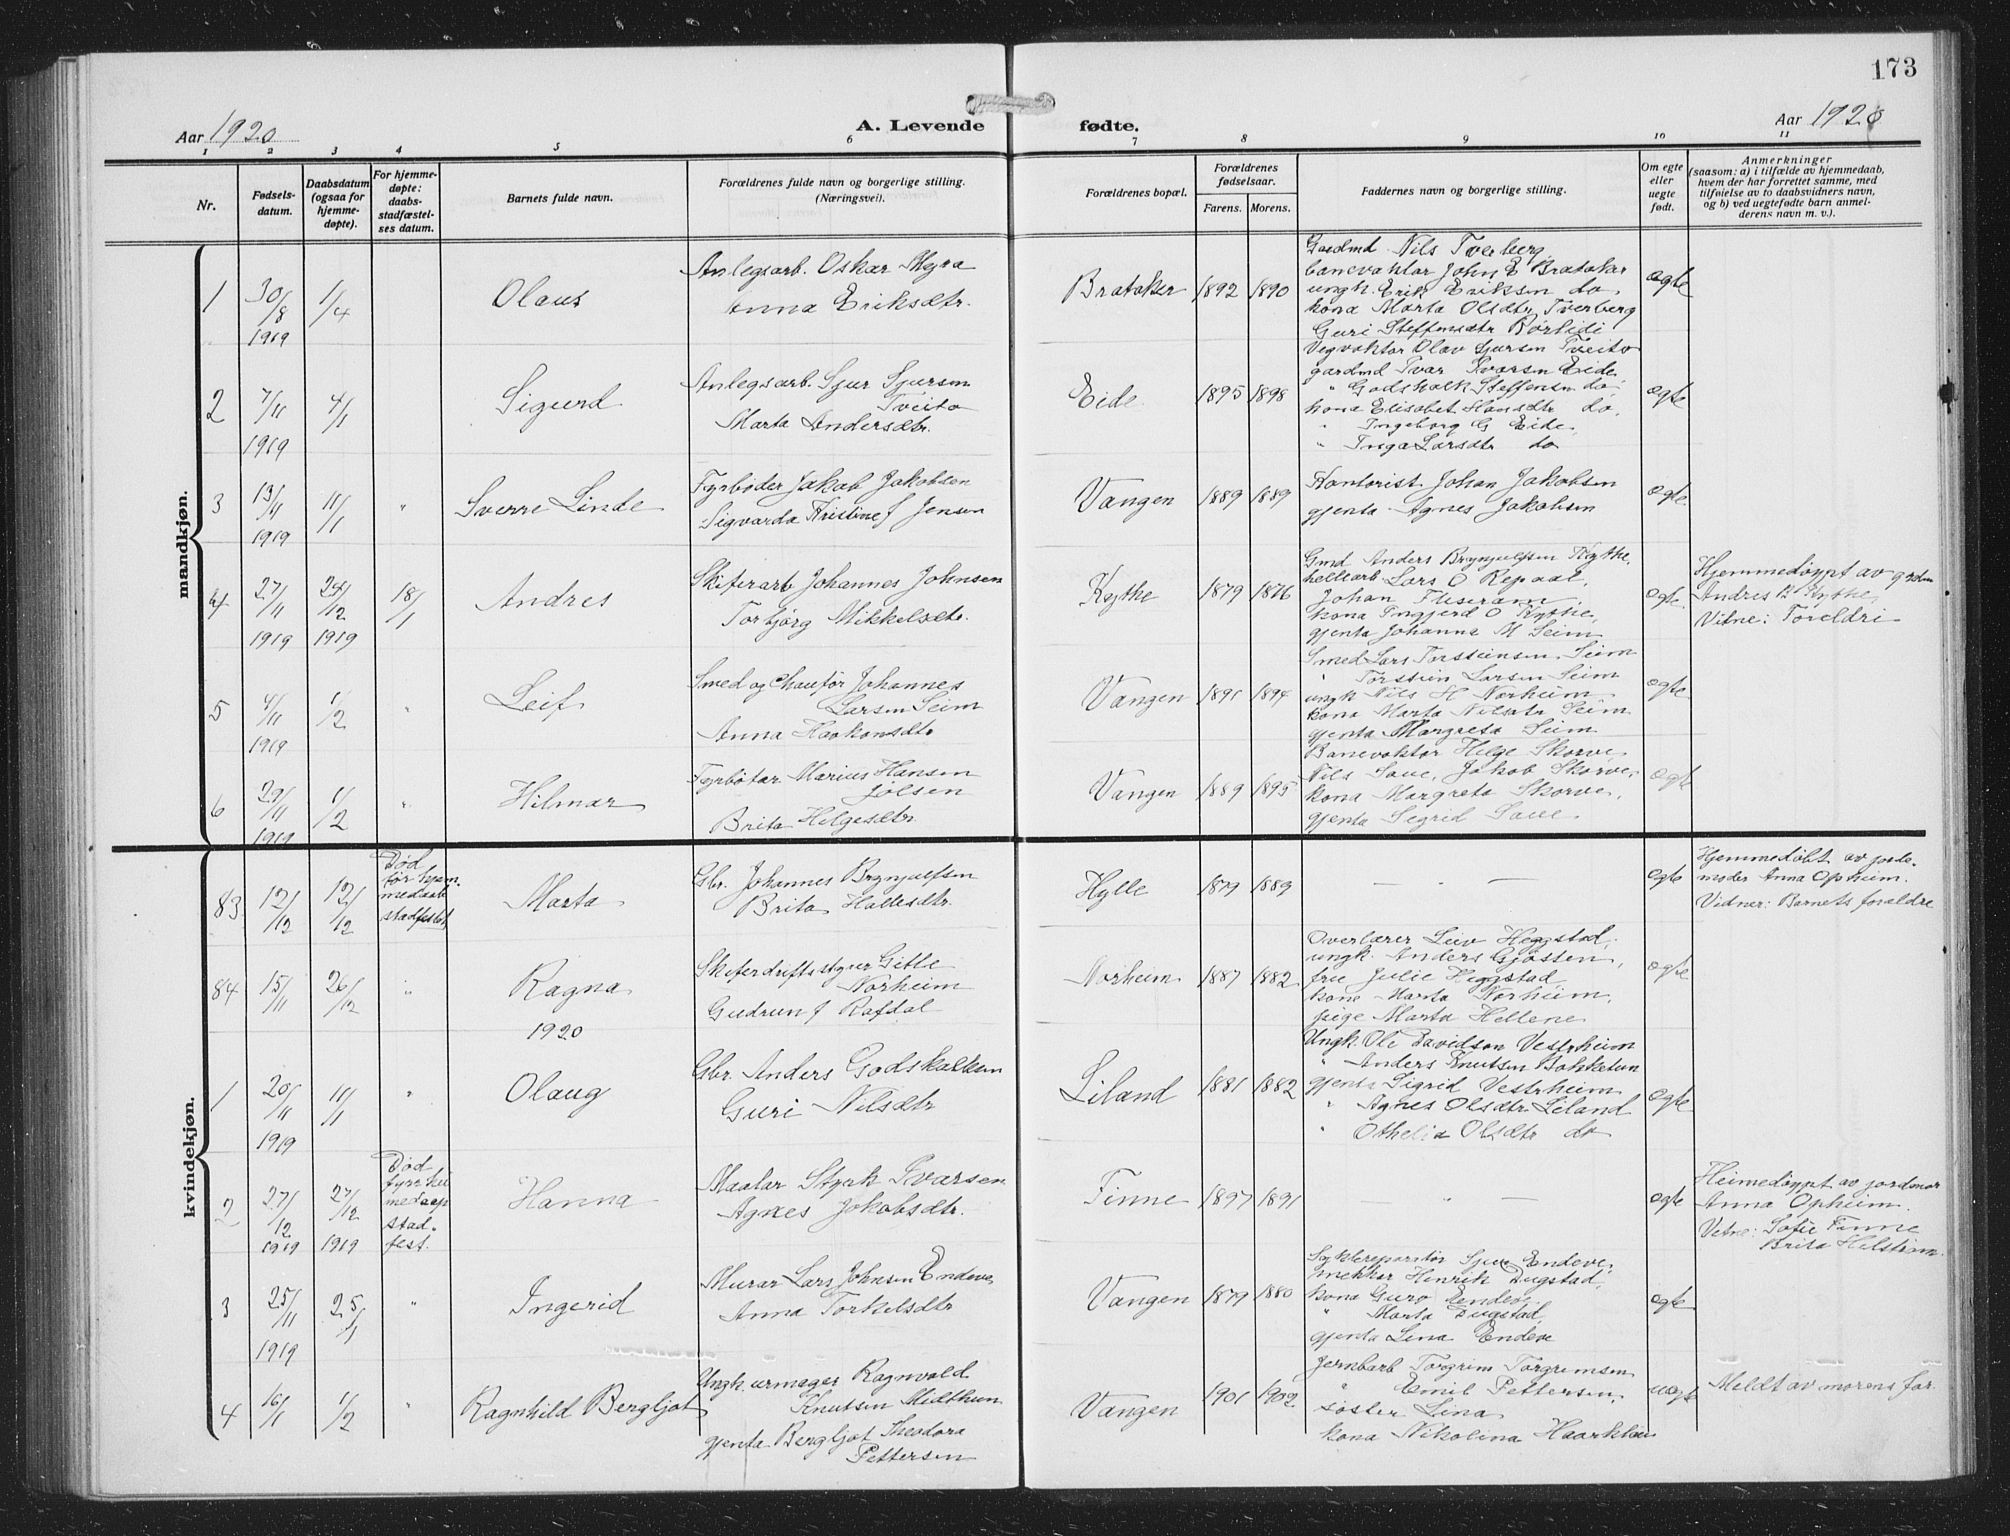 173
Aar 1920
A. Levende fødte.
Aar 1920
1 2 3 4 5 6 7 8 9 10 11
Nr.
Fødselsdatum.
Daabsdatum (ogsaa for hjemmedøpte).
For hjemmedøpte: daabsstadfæstelses datum.
Barnets fulde navn.
Forældrenes fulde navn og borgerlige stilling. (Næringsvei).
Forældrenes bopæl.
Forældrenes fødselsaar.
Farens. Morens.
Faddernes navn og borgerlige stilling.
Om egte eller uegte født.
Anmerkninger
(saasom: a) i tilfælde av hjemmedaab,
hvem der har forrettet samme, med
tilføielse av to daabsvidners navn,
og b) ved uegtefødte barn anmelderens navn m. v.).
mandkjøn.
1 30/8 1919 1/4 Olaus
Anlegsarb. Oskar Myra
Anna Eriksdtr.
Brataker 1892 1890
Gardmd Nils Tverberg,
banevaktar John E Brataker
ungk. Erik Eriksen do
kona Marta Olsdtr Tverberg
Guri Steffensdtr Rørlidi
egte
2 7/11 1919 4/1 Sigurd
Anlegsarb. Sjur Sjursen
Tveito
Marta Andersdtr.
Eide 1895 1898
Vegvaktar Olav Sjursen Tveito
gardmd Ivar Ivarsen Eide,
" Godskalk Steffensen do,
kona Elisabet Hansdtr do,
" Ingeborg G Eide,
" Inga Larsdtr do
egte
3 13/11 1919 11/1 " Sverre Linde
Fyrbøder Jakob Jakobsen
Sigvarda Kristine f Jensen
Vangen 1889 1889
Kontorist Johan Jakobsen
gjenta Agnes Jakobsen
egte
4 27/11 1919 24/12 1919 18/1 Andres
Skiferarb Johannes Johnsen
Torbjørg Mikkelsdtr.
Kythe 1879 1876
Gmd Anders Brynjulfsen Kythe,
hellearb Lars O Repaal,
Johan Fliseram,
kona Ingjerd O Kythe,
gjenta Johanna M Seim
egte
Hjemmedøypt av gardm
Andres B Kythe,
Vitne: Foreldri
5 4/11 1919 1/2 " Leif
Smed og Chaufør Johannes
Larsen Seim
Anna Haakonsdtr
Vangen 1891 1894
Smed Lars Torsteinsen Seim
" Torstein Larsen Seim
ungk Nils H Norheim
kona Marta Nilsdtr Seim
gjenta Margreta Seim
egte
6 29/11 1919 1/2 " Hilmar
Fyrbøtar Marius Hansen
Jølsen
Brita Helgesdtr
Vangen 1889 1895
Banevaktar Helge Skorve,
Nils Saue, Jakob Skorve,
kona Margreta Skorve,
gjenta Sigrid Saue.
egte
kvindekjøn.
83 12/12 12/12
Død
før hjem-
medaab
stadfestet
Marta
Gbr. Johannes Brynjulfsen
Brita Hallesdtr.
Hylle 1879 1889
— " —
egte
Hjemmedøbt av jorde-
moder Anna Opheim.
Vidner: Barnets forældre
84 15/11 26/12 " Ragna
Skiferdriftsstyrer Gitle
Norheim
Gudrun f Rafdal
Norheim 1887 1882
Overlærer Leiv Heggstad,
ungk. Anders Gjøsten,
frue Julie Heggstad
kone Marta Norheim,
pige Marta Hellene
egte
1920
1 20/11 1919 11/1 " Olaug
Gbr. Anders Godskalksen
Guri Nilsdtr
Liland 1881 1882
Ungk. Ole Davidson Vestrheim
" Anders Knutsen Bokketun
gjenta Sigrid Vestrheim
" Agnes Olsdtr Liland
" Othelia Olsdtr do
egte
2 27/12 1919 27/12 1919
Død
fyrr hei
medaap
stad-
fest.
Hanna
Maalar Styrk Ivarsen
Agnes Jakobsdtr.
Finne 1897 1891
— " —
egte
Heimedøypt av jordmor
Anna Opheim.
Vitne: Sofie Finne
Brita Helstinn
3 25/11 1919 25/1 " Ingerid
Murar Lars Johnsen Endeve
Anna Torkelsdtr
Vangen 1879 1880
Sykkelreparatør Sjur Endeve,
snekkar Henrik Dugstad,
kona Guro Endeve
" Marta Dugstad,
gjenta Lina Endeve
egte
4 16/1 1/2 " Ragnhild Bergljot
Ungk. urmager Ragnvald
Knutsen Midthun
gjenta Bergljot Theodora
Pettersen
Vangen 1901 1902
Jernbarb Torgrim Torgrimsen
" Emil Pettersen,
søster Lina
kona Nikolina Haarklau
uegte
Meldt av morens far